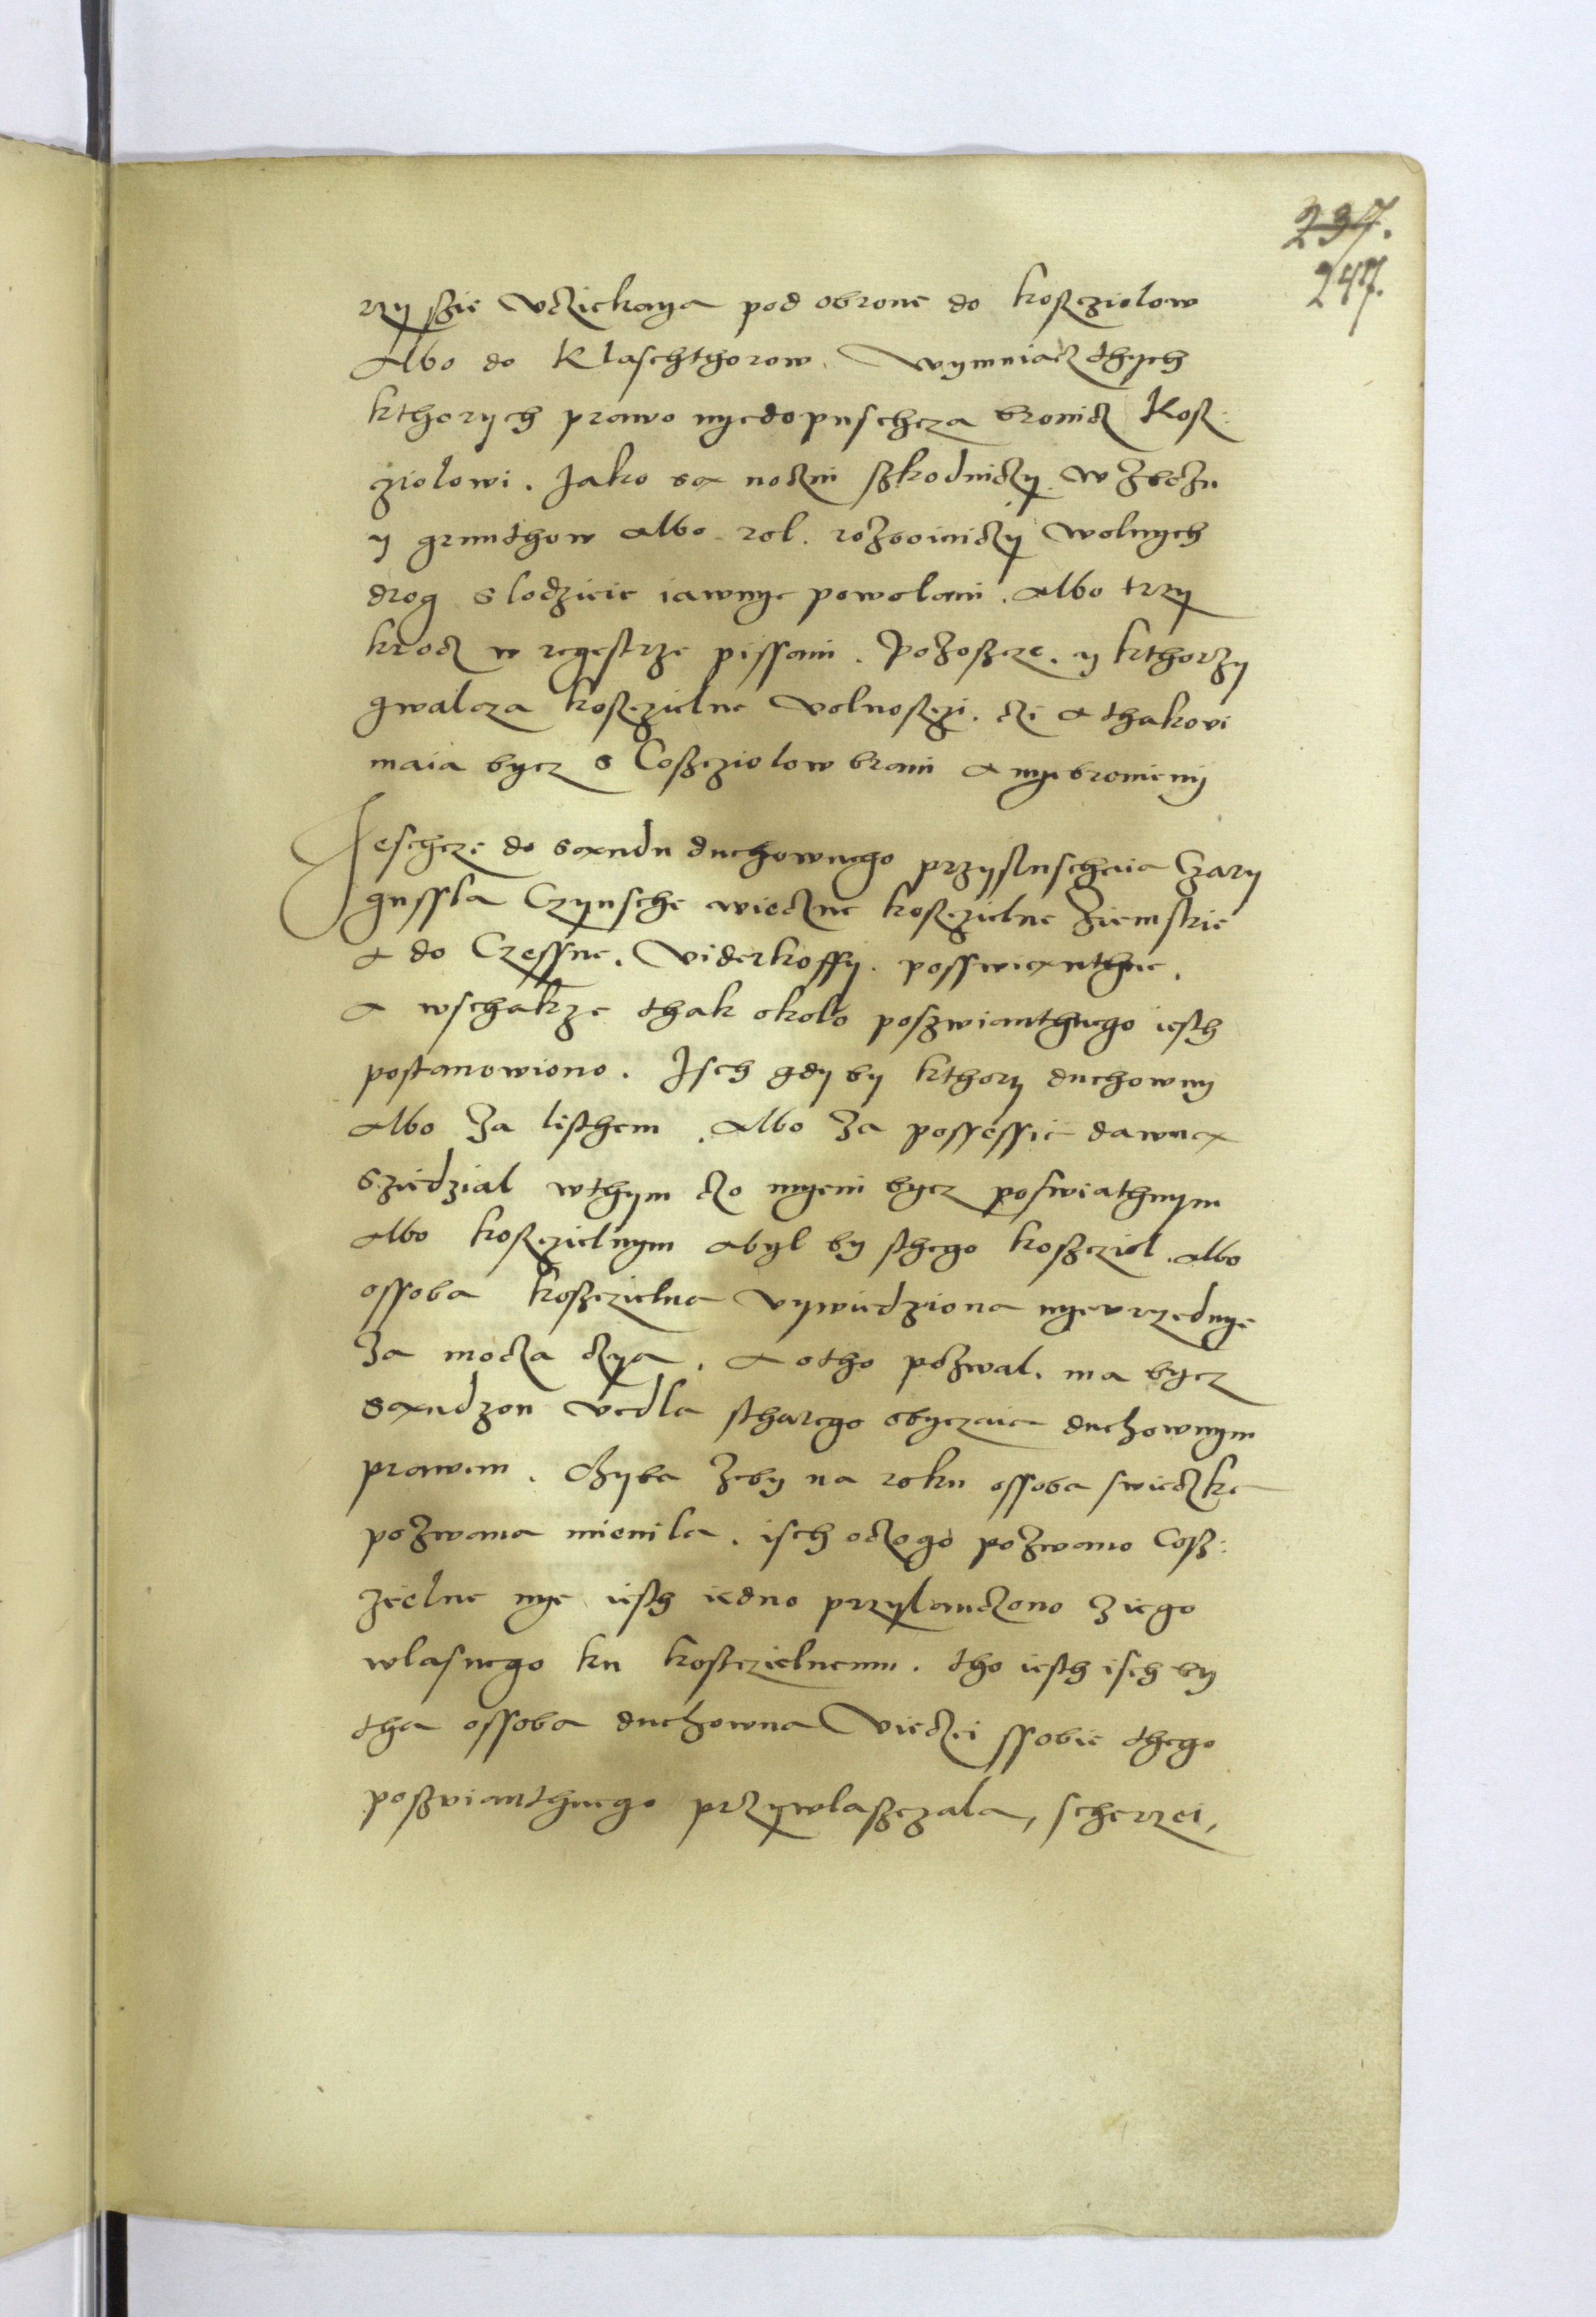 237.
247.
rzy szie vcziekaya pod obrone do koscziolow
Albo do Klaschthorow. Wymniacz thych
kthorych prawo nyedopuscheza bronicz Kosz:
ziolowi. Jako sa noczni szkodniczy. w zbozu
y grunthow albo rol. rozboiniczy wolnych
drog slodzieie iawnye powolani. Albo trzy
krocz w regestrze pissani. Pozoszcze. y kthorzy
gwalcza kosczielne volnosczi. czi a thakovi
maia bycz s Coscziolow brani a nyebronieny
Jeschcze do sandu duchownego przysluscheia Czary
gussla Czynsche wieczne kosczielne ziemskie
a do Czessne. Viderkoffy. posswiaenthne.
a wschakze thak okolo poszwianthnego iesth
postanowiono. Isch gdy by kthory duchowny
albo za listhem. Albo za possessie dawna
sziedzial wthym czo myeni bycz poswiathnym
albo kosczielnym abyl by sthego kosziel. albo
ossoba kosczielna vywiedziona nyevrzednye
za mocza czya. a otho pozwal. ma bycz
sandzon vedla stharego obyczaia duchownym
prawem. Chyba zeby na roku ossoba swieczka
pozwana mienila. isch oczogo pozwano Cosz:
zielne nye iesth iedno przylanczono ziego
wlasnego ku kosczielnemu. tho iesth isch by
tha ossoba duchowna Vieczei ssobie thego
poszvianthnego przywlaszczala, scherzei,